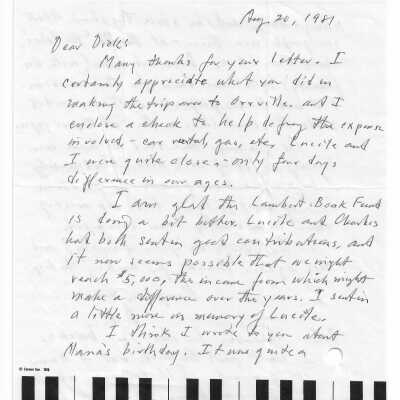 Aug 20, 1981.
Dear Dick:
Many thanks for your letter. I
certainly appreciate what you did in
making the trip over to Orrville and I
enclose a check to help defray the expense
involved, - car rental, gas, etc. Lucile and
I were quite close - only four days
difference in our ages.
I am glad the Lambert Book Fund
is doing a bit better. Lucile and Charles
had both sent in good contributions, and
it now seems possible that we might
reach $5,000, the income from which might
make a difference over the years. I sent in
a little more in memory of Lucile.
I think I wrote to you about
Mama's birthday. It was quite a